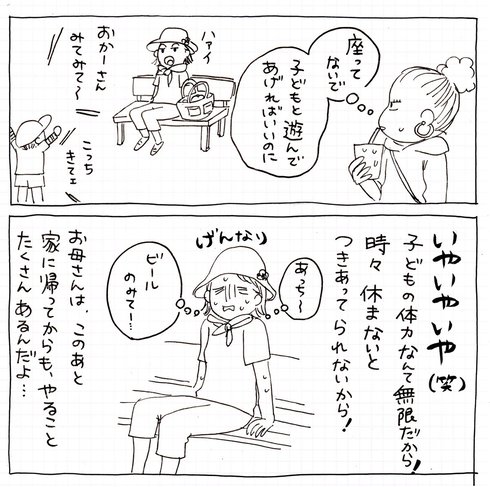 座って
ないで
子どもと遊んで
あげればいいのに
ハァイ
おかーさん
みてみて〜
こっち
きてェ
いやいやいや(笑)
子どもの体力なんて無限だから!
時々休まないと
つきあってられないから!
げんなり
あっち〜
ビール
のみて〜…
お母さんは、このあと
家に帰ってからも、やること
たくさんあるんだよ…